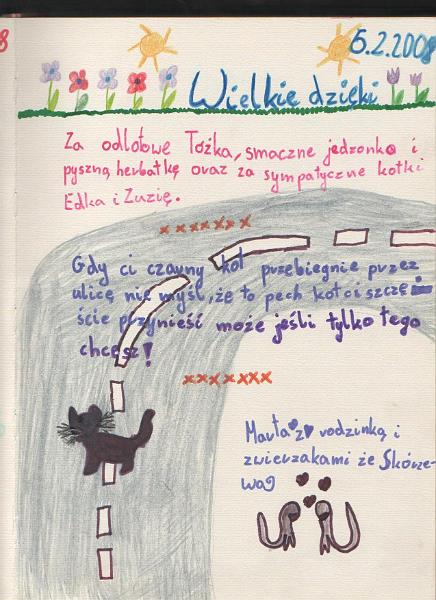 8
5.2.2008
Wielkie dzięki
Za odlotowe Tożka, smaczne jedzonko i
pyszną herbatkę oraz za sympatyczne kotki
Edka i Zuzię.
xxxxxxx
Gdy ci czarny kot przebiegnie przez
ulicę nie myśl, że to pech kot ci szczę-
ście przynieść może jeśli tylko tego
chcesz!
xxxxxxx
Marta z rodzinką i
zwierzakami ze Skórze-
wa